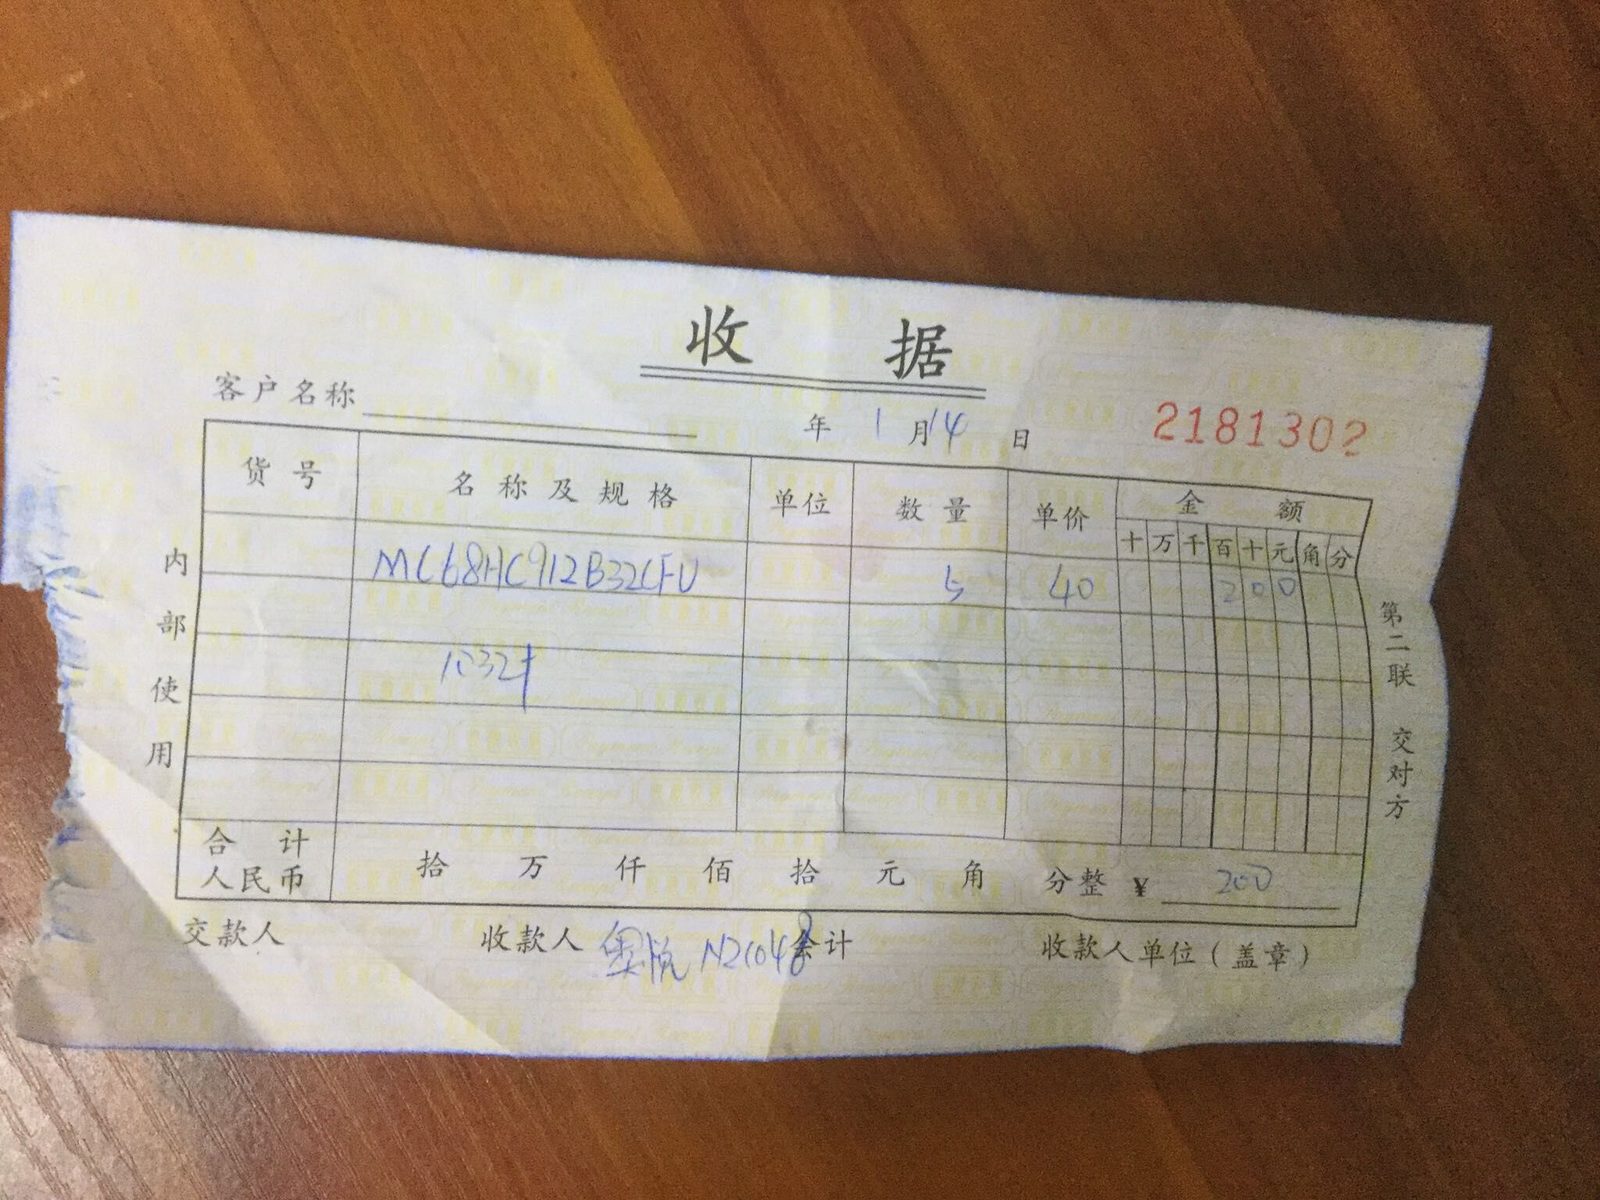 收 据
客户名称
年 1 月 14 日
2181302
货号 名称及规格 单位 数量 单价 金额
十 万 千 百 十 元 角 分
MC68HC912B32CFU 5 40 200
内部使用
第二联 交对方
合计人民币 拾 万 仟 佰 拾 元 角 分整 ¥ 200
交款人 收款人 N2C048 会计 收款人单位(盖章)